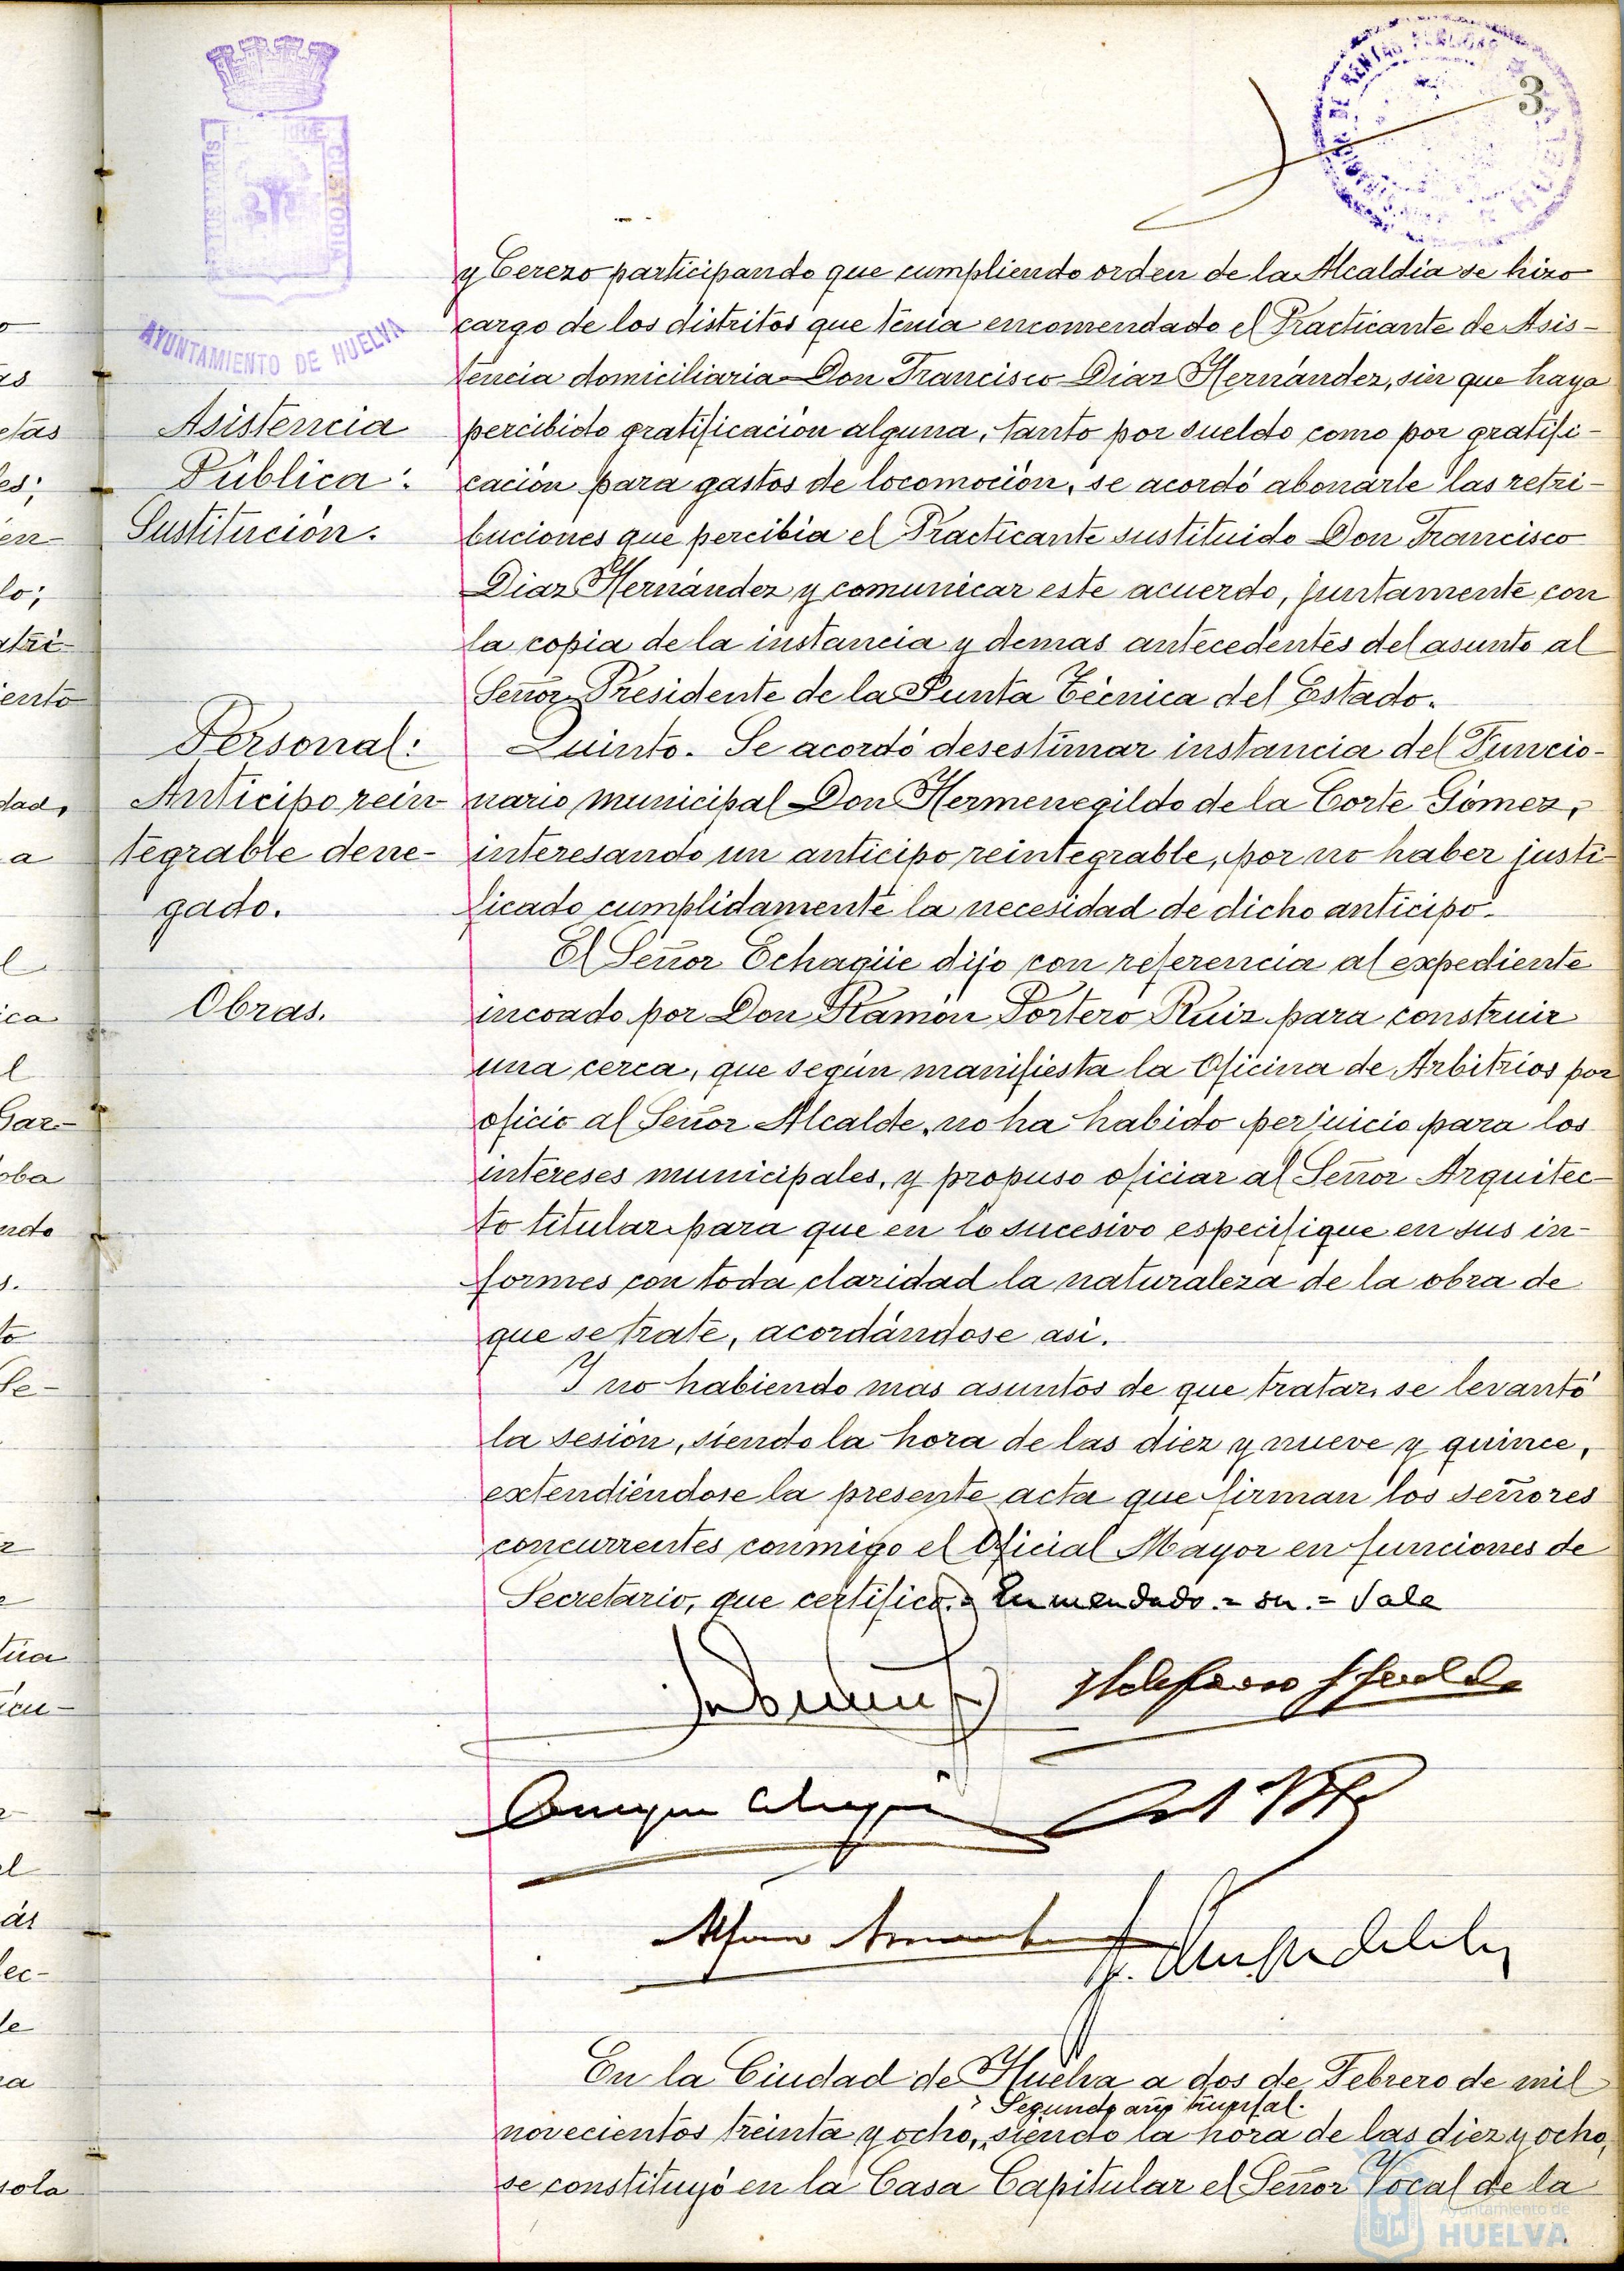 3
PORTUS MARIS
CUSTODIA
AYUNTAMIENTO DE HUELVA
y Cerezo participando que cumpliendo orden de la Alcaldia se hizo
cargo de los distritos que tenia encomendado el Practicante de Asis-
tencia domiciliaria Don Francisco Diaz Hernández, sin que haya
Asistencia
percibido gratificación alguna, tanto por sueldo como por gratifi-
Pública:
cación para gastos de locomoción, se acordó abonarle las retri-
Sustitución.
buciones que percibia el Practicante sustituido Don Francisco
Diaz Hernández y comunicar este acuerdo, juntamente con
la copia de la instancia y demas antecedentes del asunto al
Señor Presidente de la Junta Técnica del Estado.
Personal:
Quinto. Se acordó desestimar instancia del Funcio-
Anticipo rein-
nario municipal Don Hermenegildo de la Corte Gómez,
tegrable dene-
interesando un anticipo reintegrable, por no haber justi-
gado.
ficado cumplidamente la necesidad de dicho anticipo.
El Señor Echagüe dijo con referencia al expediente
Obras.
incoado por Don Ramón Portero Ruiz para construir
una cerca, que según manifiesta la Oficina de Arbitrios por
oficio al Señor Alcalde, no ha habido perjuicio para los
intereses municipales, y propuso oficiar al Señor Arquitec-
to titular para que en lo sucesivo especifique en sus in-
formes con toda claridad la naturaleza de la obra de
que se trate, acordándose asi.
Y no habiendo mas asuntos de que tratar, se levantó
la sesión, siendo la hora de las diez y nueve y quince,
extendiéndose la presente acta que firman los señores
concurrentes conmigo el Oficial Mayor en funciones de
Secretario, que certifico.= Enmendado.= on.= Vale
En la Ciudad de Huelva a dos de Febrero de mil
Segundo año triunfal.
novecientos treinta y ocho, siendo la hora de las diez y ocho,
se constituyó en la Casa Capitular el Señor Vocal de la
Ayuntamiento de
HUELVA